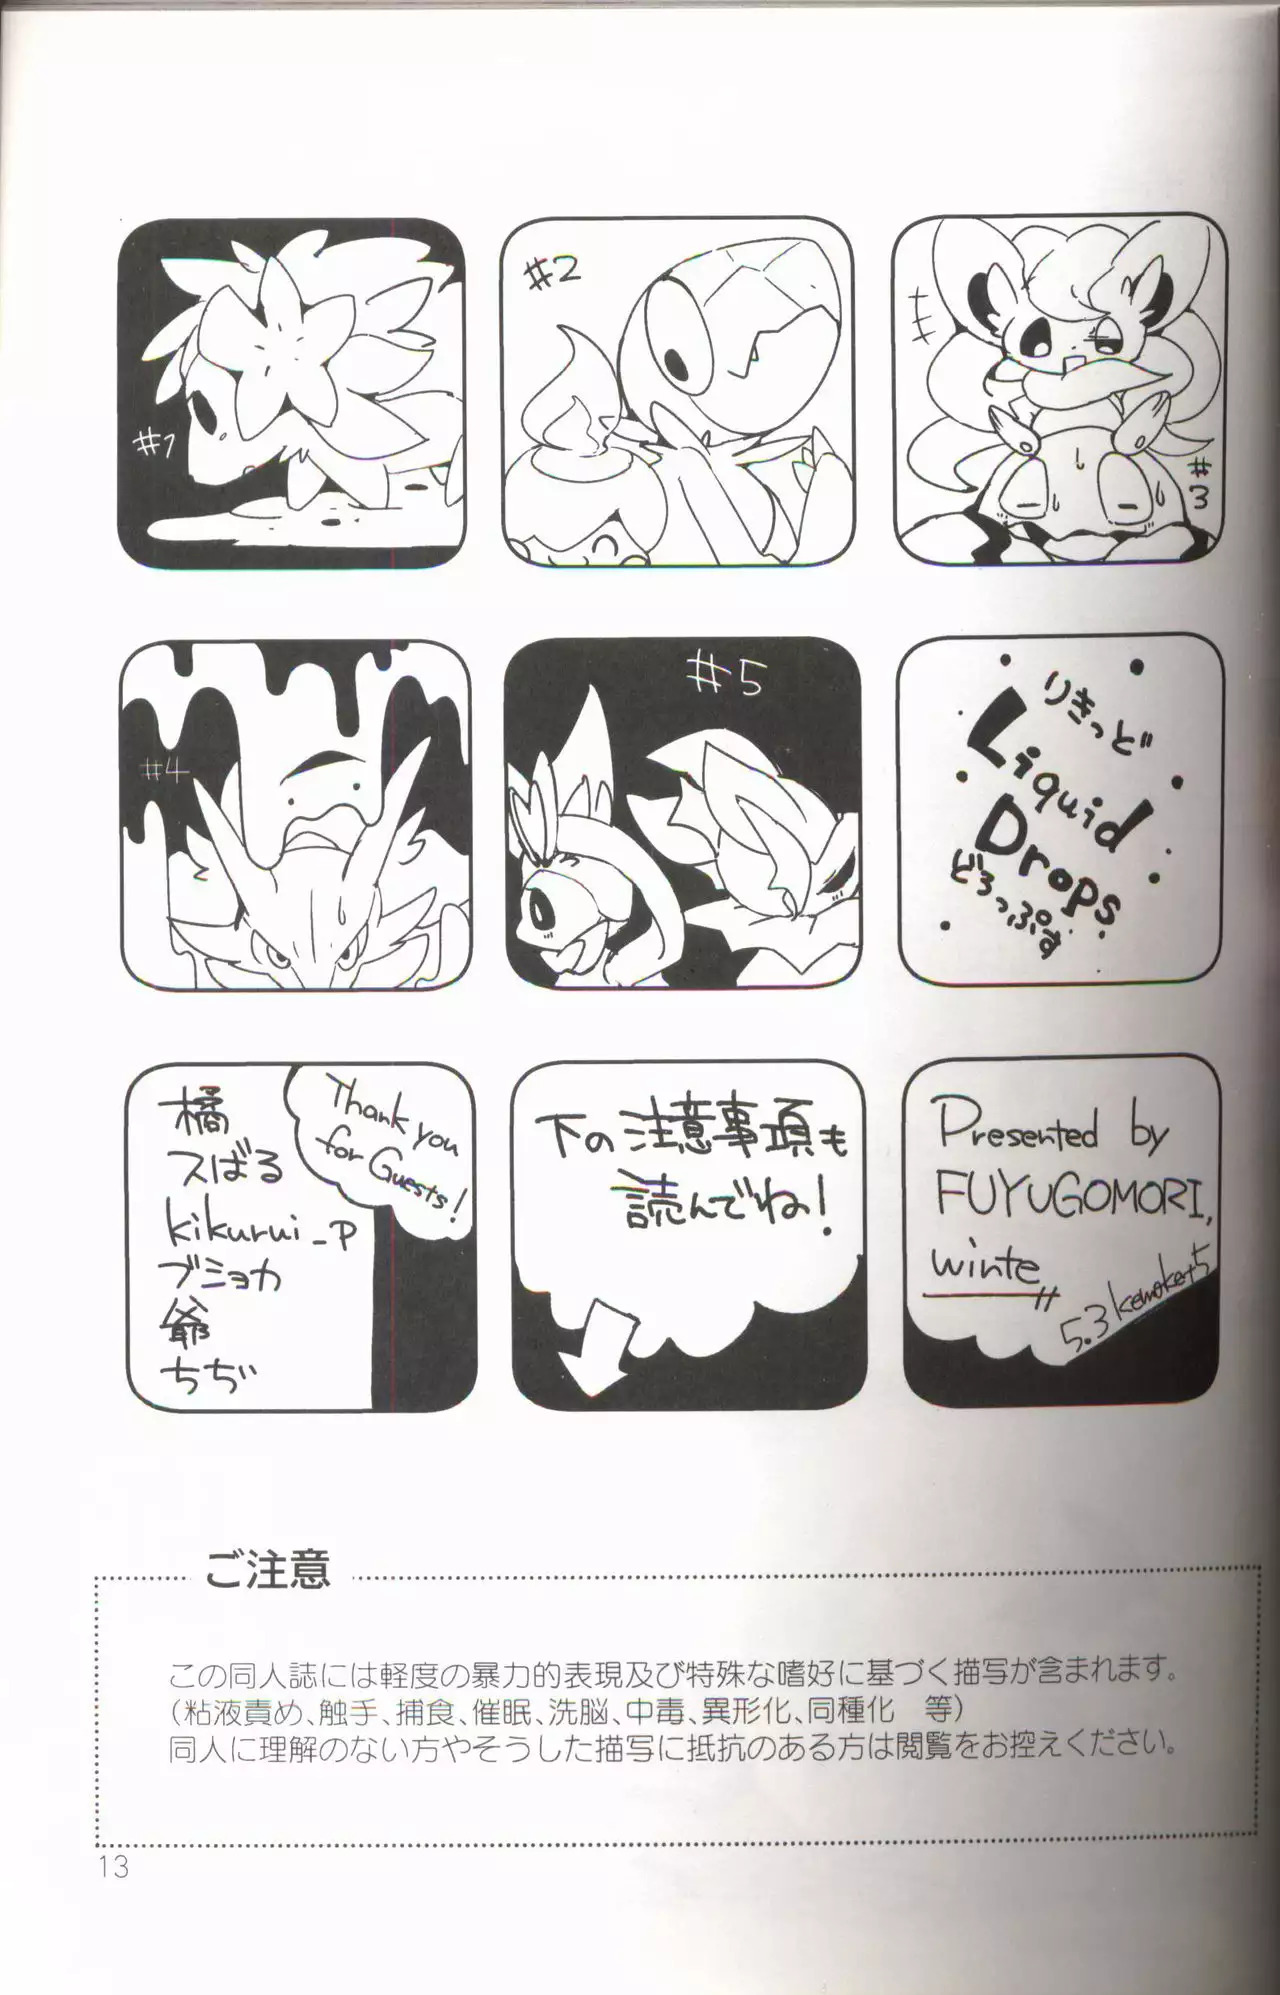 #1
#2
#3
#4
#5
りきっど
Liquid
Drops
どろっぷす
橘
スばる
kikurui_p
ブショカ
爺
ちぢ
Thank you
for Guests!
下の注意事項も
読んでね!
Presented by
FUYUGOMORI,
winte
5.3 kemoket5
ご注意
この同人誌には軽度の暴力的表現及び特殊な嗜好に基づく描写が含まれます。
(粘液責め、触手、捕食、催眠、洗脳、中毒、異形化、同種化 等)
同人に理解のない方やそうした描写に抵抗のある方は閲覧をお控えください。
13